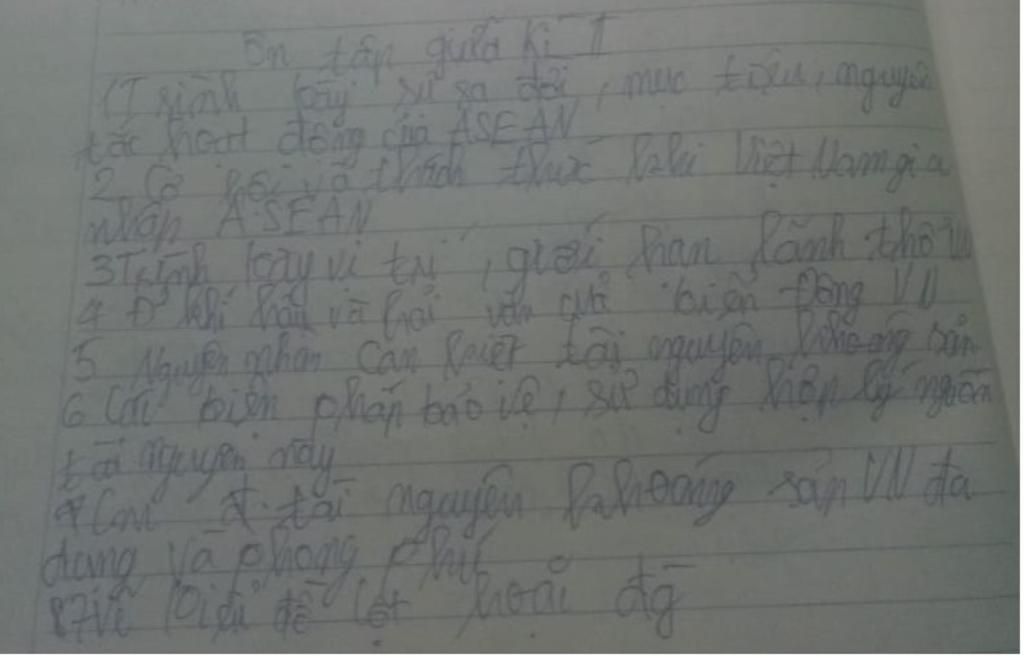 Ôn tập giữa kì II
1 Trình bày sự ra đời, mục tiêu, nguyên
tắc hoạt động của ASEAN
2 Cơ hội và thách thức khi Việt Nam gia
nhập ASEAN
3 Trình bày vị trí, giới hạn lãnh thổ VN
4 Đ² khí hậu và hải văn của biển Đông VN
5 Nguyên nhân cạn kiệt tài nguyên khoáng sản
6 Các biện pháp bảo vệ, sử dụng hợp lý nguồn
tài nguyên này
tài nguyên khoáng sản VN đa
dạng và phong phú
vẽ biểu đồ cột